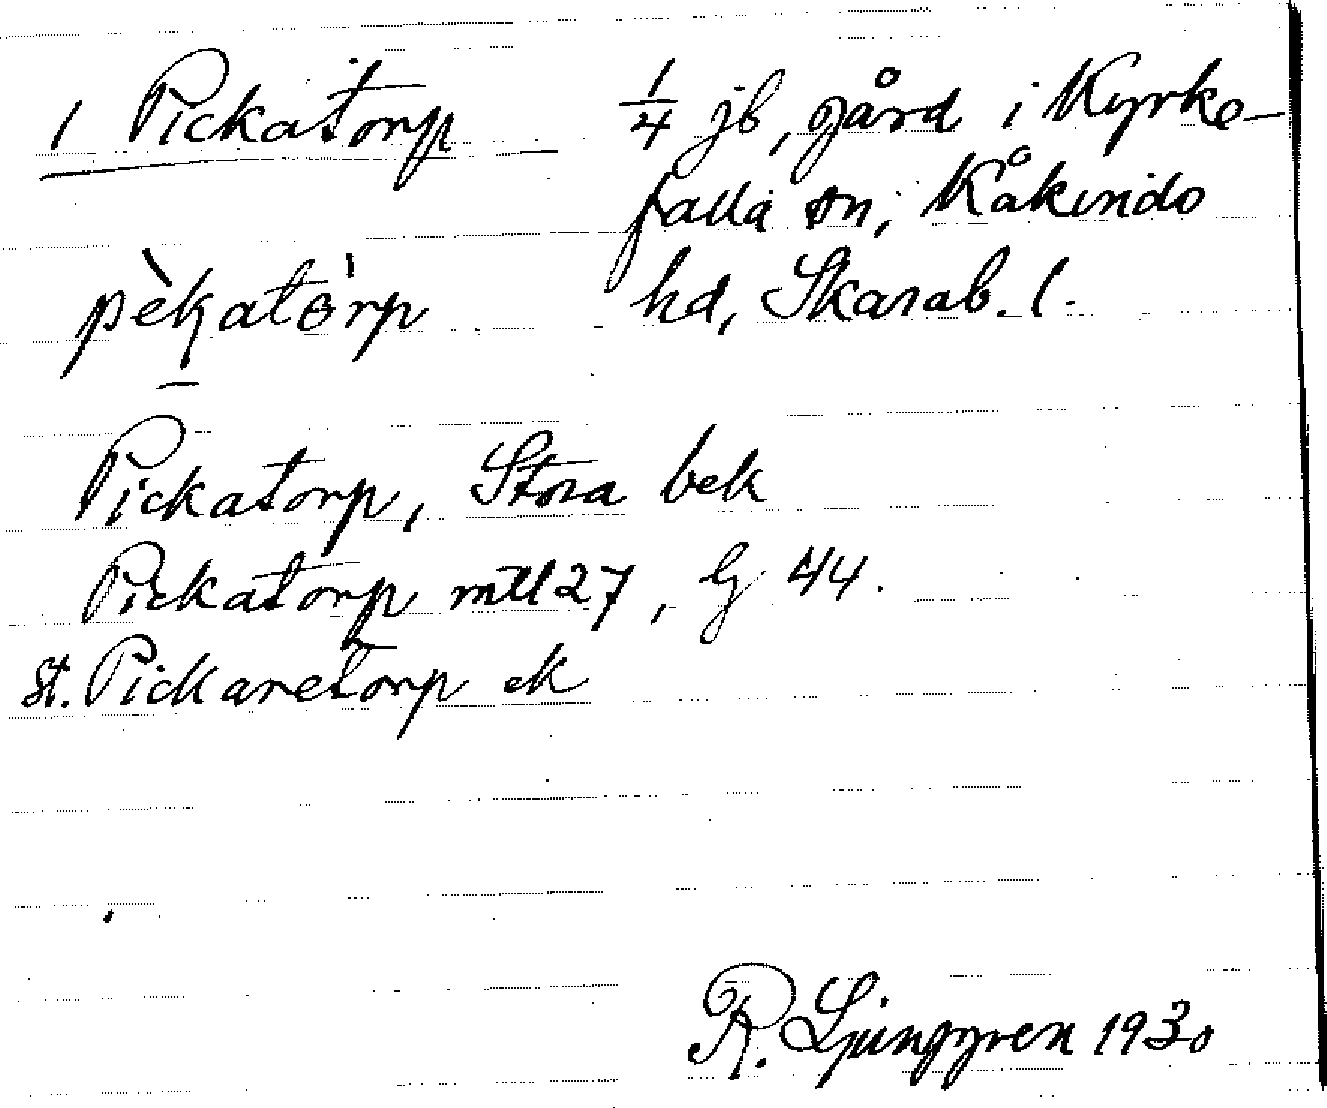 1 Pickatorp
1/4 jb, gård i Kyrke-
falla sn, Kåkinds
hd, Skarab. l.
pèkatɵ̀rp
Pickatorp, Stora bek
Pickatorp mtl 27, Lj 44.
St. Pickaretorp ek
R. Ljunggren 1930